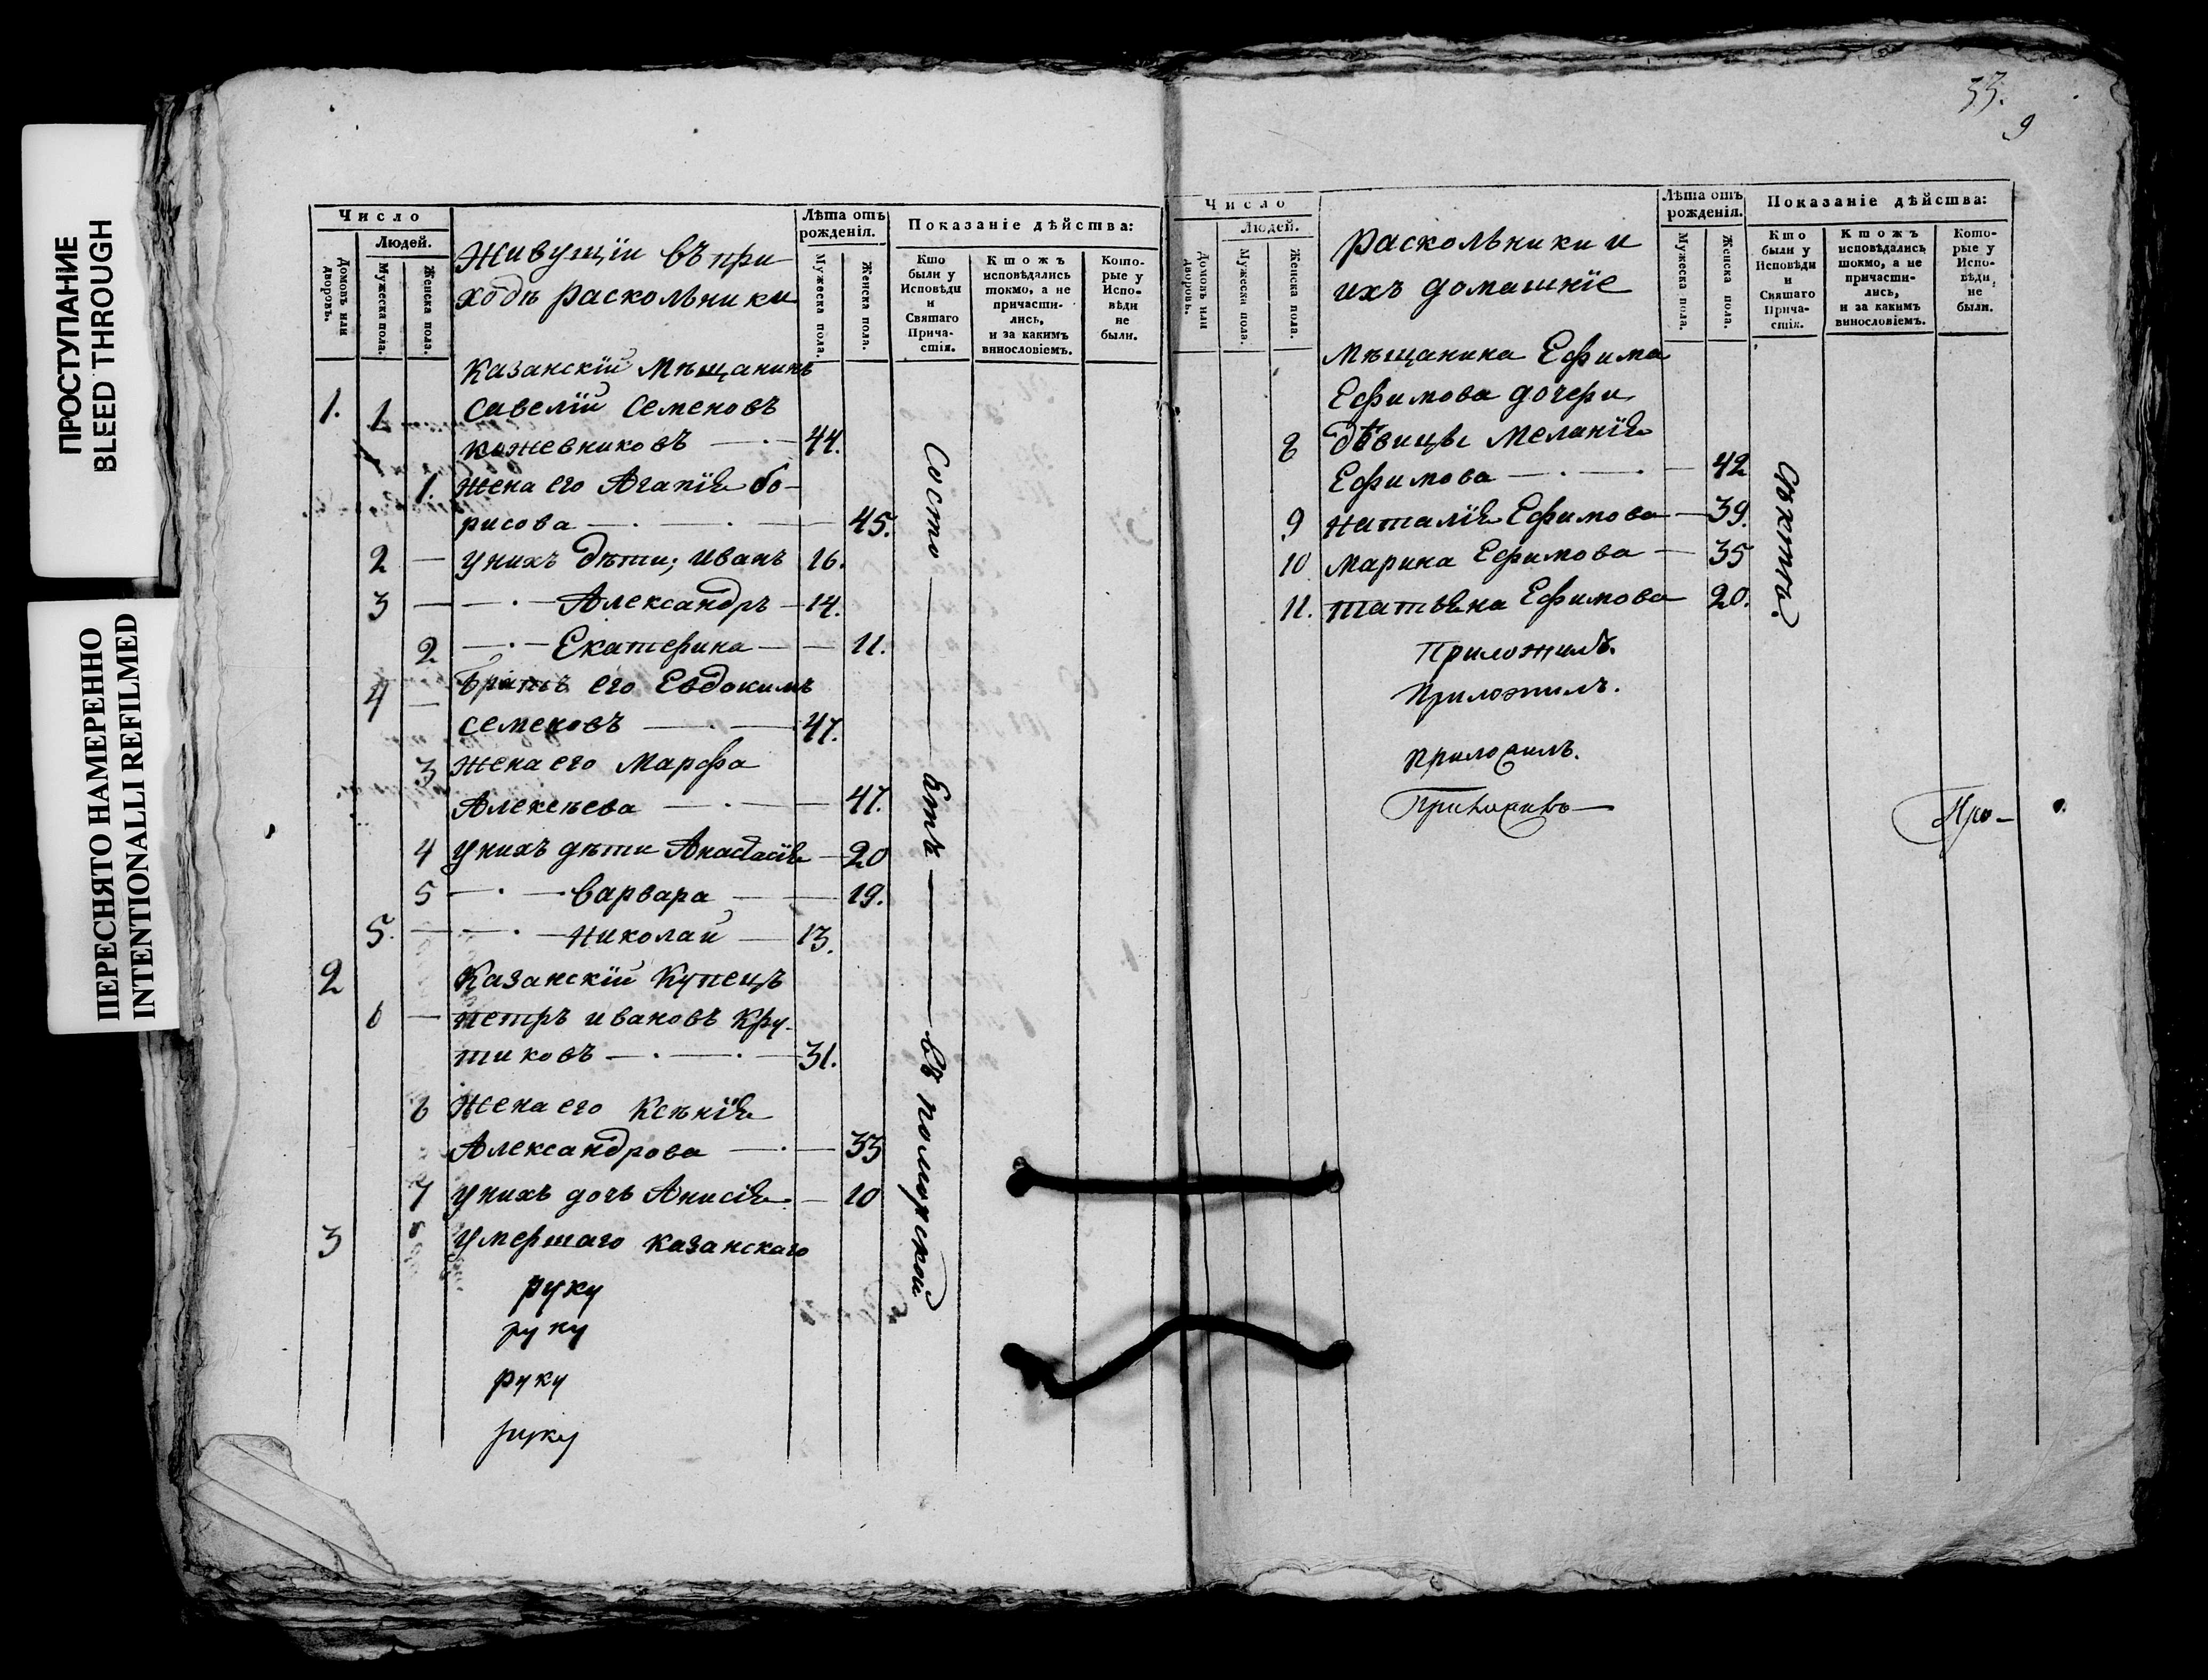 ПРОСТУПАНИЕ
BLEED THROUGH
ПЕРЕСНЯТО НАМЕРЕННО
INTENTIONALLI REFILMED
Число
Людей.
Домовъ или дворовъ.
Мужеска пола.
Женска пола.
Живущіи въ при-
ходѣ раскольники
Лѣта отъ рожденія.
Мужеска пола.
Женска пола.
Показаніе дѣйства:
Кто были у Исповѣди и Святаго Прича-стія.
Ктожъ исповѣдались токмо, а не причасти-лись, и за какимъ винословіемъ.
Кото-рые у Испо-вѣди не были.
Казанскій Мѣщанинъ
1. 1 Савелій Семеновъ
Кожевниковъ 44.
1. Жена его Агапія Бо-
рисова 45.
2 У нихъ дѣти; Иванъ 16.
3 Александръ 14.
2 Екатерина 11.
4 Братъ его Евдокимъ
Семеновъ 47.
3 Жена его Марфа
Алексѣева 47.
4 У нихъ дѣти Анастасія 20
5 Варвара 19.
5. Николай 13.
2 Казанскій Купецъ
6 Петръ Ивановъ Кру-
тиковъ 31.
6 Жена его Ксѣнія
Александрова 33
7 У нихъ дочь Анисія 10
3 Умершаго Казанскаго
руку
руку
руку
руку
Состо ятъ въ поморской
33.
9
Число
Людей.
Домовъ или дворовъ.
Мужеска пола.
Женска пола.
Раскольники и
ихъ домашніе
Лѣта отъ рожденія.
Мужеска пола.
Женска пола.
Показаніе дѣйства:
Кто были у Исповѣди и Святаго Прича-стія.
Ктожъ исповѣдались токмо, а не причасти-лись, и за какимъ винословіемъ.
Кото-рые у Испо-вѣди не были.
Мѣщанина Ефима
Ефимова дочери
8 Дѣвицы Меланія
Ефимова 42
9 Наталія Ефимова 39.
10 Марина Ефимова 35
11. Татьяна Ефимова 20.
Приложилъ.
Приложилъ.
Приложилъ.
сѣктѣ.
Про-